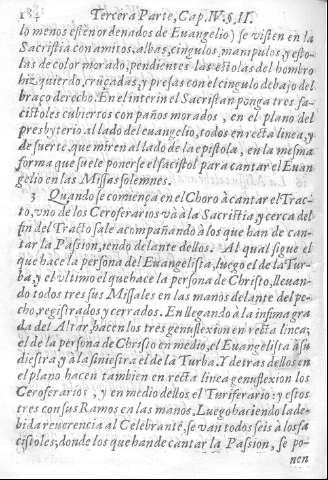 184 Tercera Parte, Cap. IV. §. II.
lo menos estèn ordenados de Euangelio) se visten en la
Sacristia con amitos, albas, cingulos, manipulos, y esto-
las de color morado, pendientes las estolas del hombro
hizquierdo, cruçadas, y presas con el cingulo debajo del
braço derecho. En el interin el Sacristan ponga tres fa-
cistoles cubiertos con paños morados, en el plano del
presbyterio al lado del euangelio, todos en recta linea, y
de suerte que miren al lado de la epistola, en la mesma
forma que suele ponerse el facistol para cantar el Euan
gelio en las Missas solemnes.
3 Quando se comiença en el Choro à cantar el Trac-
to, vno de los Ceroferarios và à la Sacristia, y cerca del
fin del Tracto sale acompañando à los que han de can-
tar la Passion, iendo delante dellos. Al qual sigue el
que hace la persona del Euangelista, luego el de la Tur-
ba, y el vltimo el que hace la persona de Christo, lleuan-
do todos tres sus Missales en las manos delante del pe-
cho, registrados y cerrados. En llegando à la infima gra
da del Altar, hacen los tres genuflexion en recta linea;
el de la persona de Christo en medio, el Euangelista à su
diestra, y à la siniestra el de la Turba. Y detras dellos en
el plano hacen tambien en recta linea genuflexion los
Ceroferarios, y en medio dellos el Turiferario: y estos
tres con sus Ramos en las manos. Luego haciendo la de-
bida reuerencia al Celebrante, se van todos seis à los fa
cistoles, donde los que han de cantar la Passion, se po-
nen